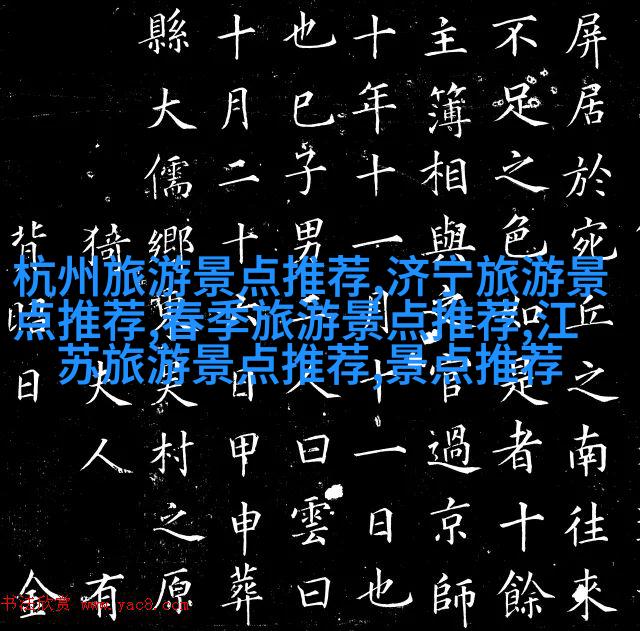 屏居於宛丘之南往來
不足之色如是者十餘
主簿相與官過京師
十年十一月十一日也
也巳子男人曰雲曰
十月二十日甲申葬
縣大儒鄉東吳村之原
猗夫人有
背日金
杭州旅游景点推荐,济宁旅游景
点推荐,春季旅游景点推荐,江
苏旅游景点推荐,景点推荐
书法欣赏 www.yac8.com